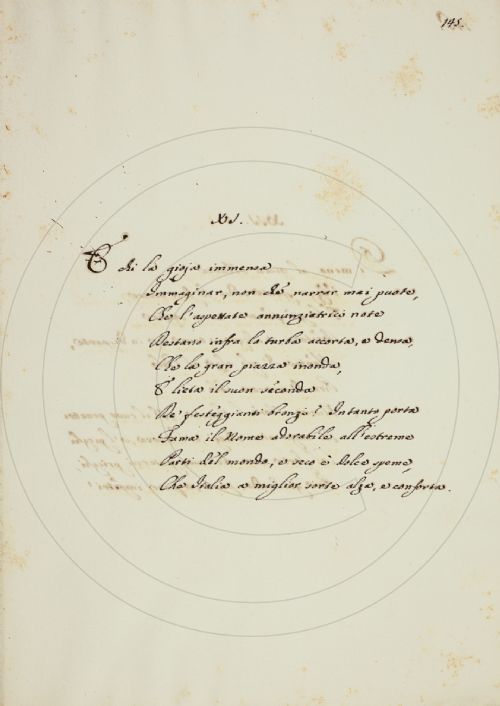 145.
XI.
E chi la gioja immensa
Immaginar, non che narrar mai puote,
Che l'aspettate annunziatrici note
Destano infra la turba accorta, e densa,
Che la gran piazza inonda,
E lieta il suon seconda
De' festeggianti bronzi? Intanto porta
Fama il Nome adorabile all'estreme
Parti del mondo, e seco è dolce speme,
Che Italia a miglior sorte alza, e conforta.